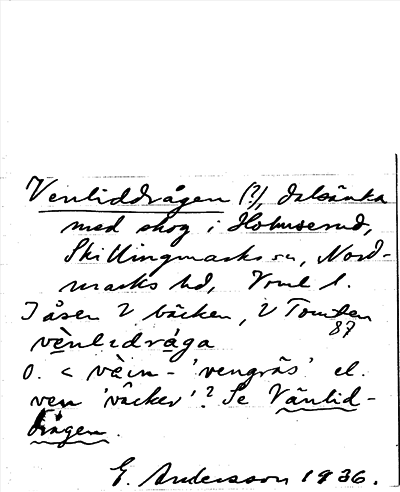 Venliddrågen (?), dalsänka
med skog i Holmserud,
Skillingmarks sn, Nord-
marks hd, Vrml l.
I åsen V bäcken, V Tomten
87
vènlıdråga
O. < vèın- 'vengräs' el.
ven 'vacker'? Se Vänlid-
drågen.
E. Andersson 1936.